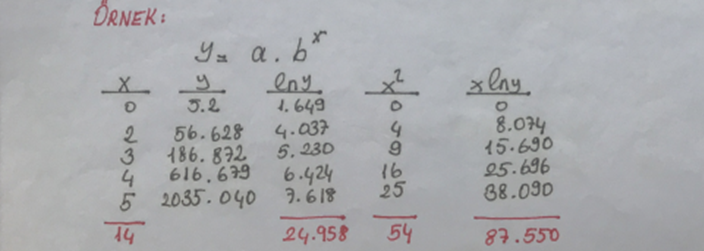 ÖRNEK:
y = a . b^x
x y lny x² xlny
0 5.2 1.649 0 0
2 56.628 4.037 4 8.074
3 186.872 5.230 9 15.690
4 616.679 6.424 16 25.696
5 2035.040 7.618 25 38.090
14 24.958 54 87.550